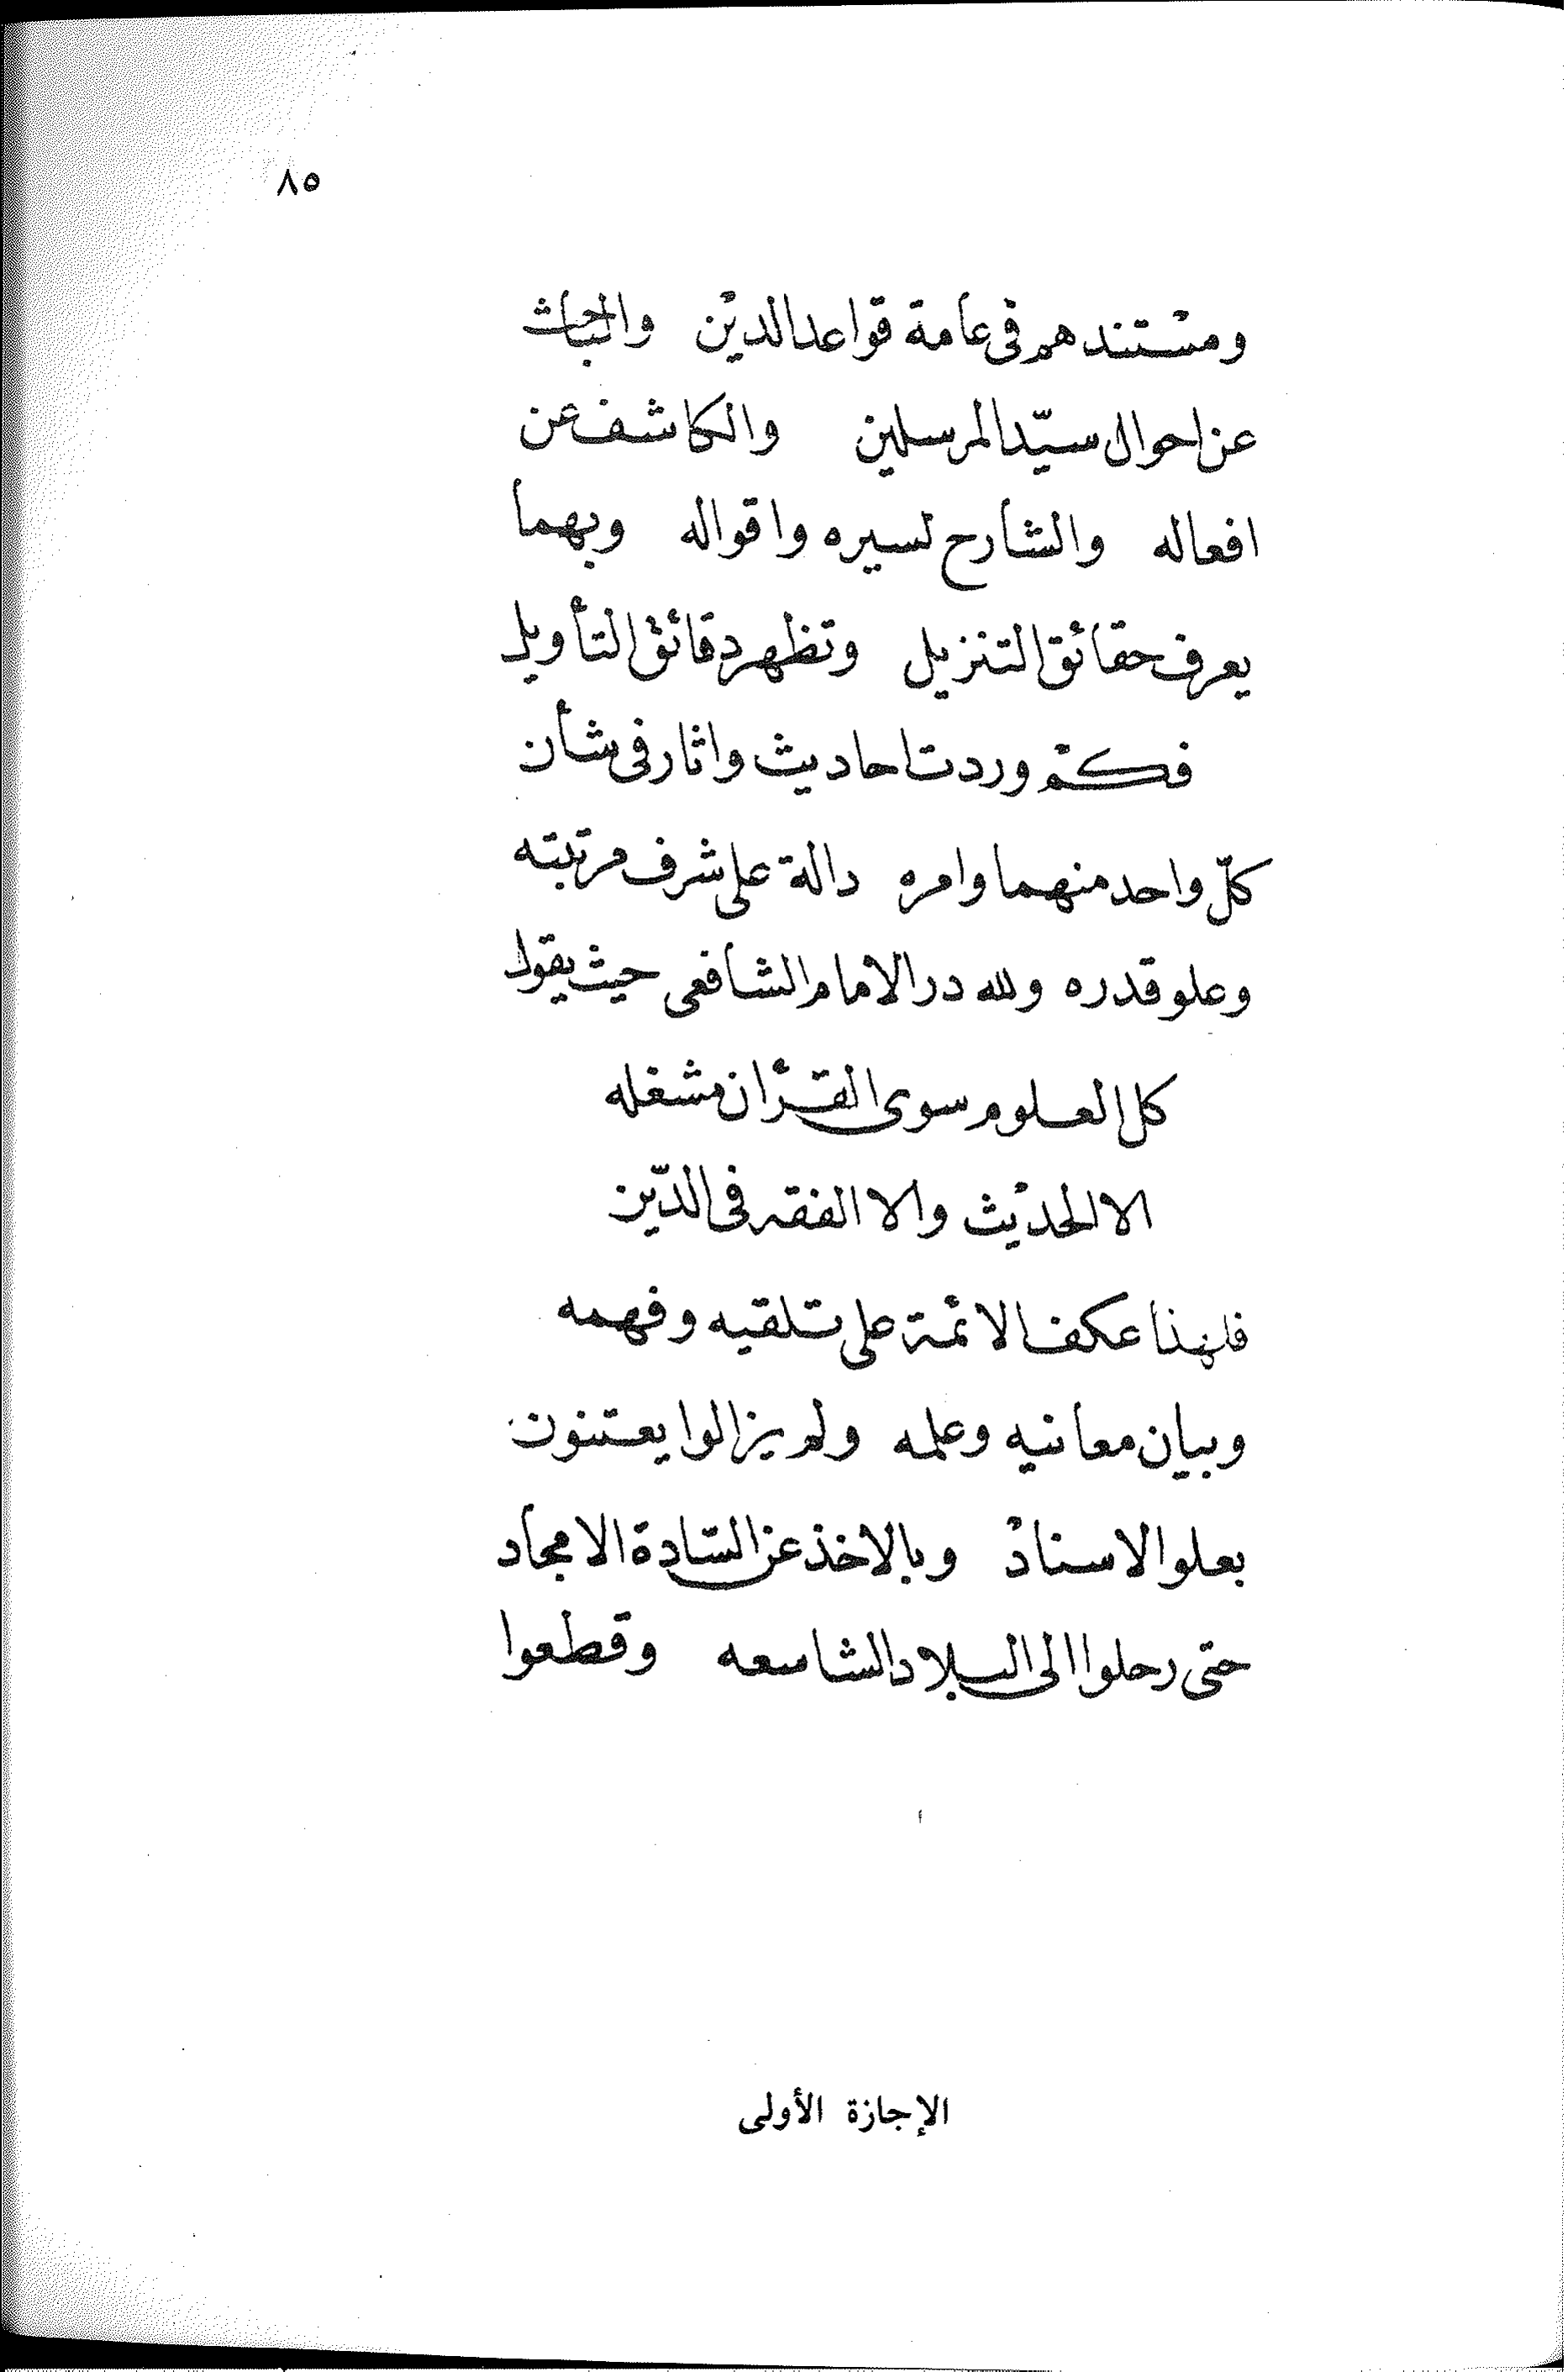 ٨٥
ومستندهم فى عامة قواعد الدين
عن احوال سيّد المرسلين والكاشف عن
افعاله والشارح لسيره واقواله وبهما
يعرف حقائق التنزيل وتظهر دقائق التأويل
فكم وردت احاديث واثار فى شأن
كلّ واحد منهما وامره دالة على شرف مرتبته
وعلو قدره ولله در الامام الشافعى حيث يقول
كل العلوم سوى القرأن مشغله
الا الحديث والا الفقه فى الدّين
فلهذا عكف الائمة على تلقيه وفهمه
وبيان معانيه وعلمه ولم يزالوا يعتنون
بعلو الاسناد وبالاخذ عن السّادة الامجاد
حتى رحلوا الى البلاد الشاسعه وقطعوا
الإجازة الأولى